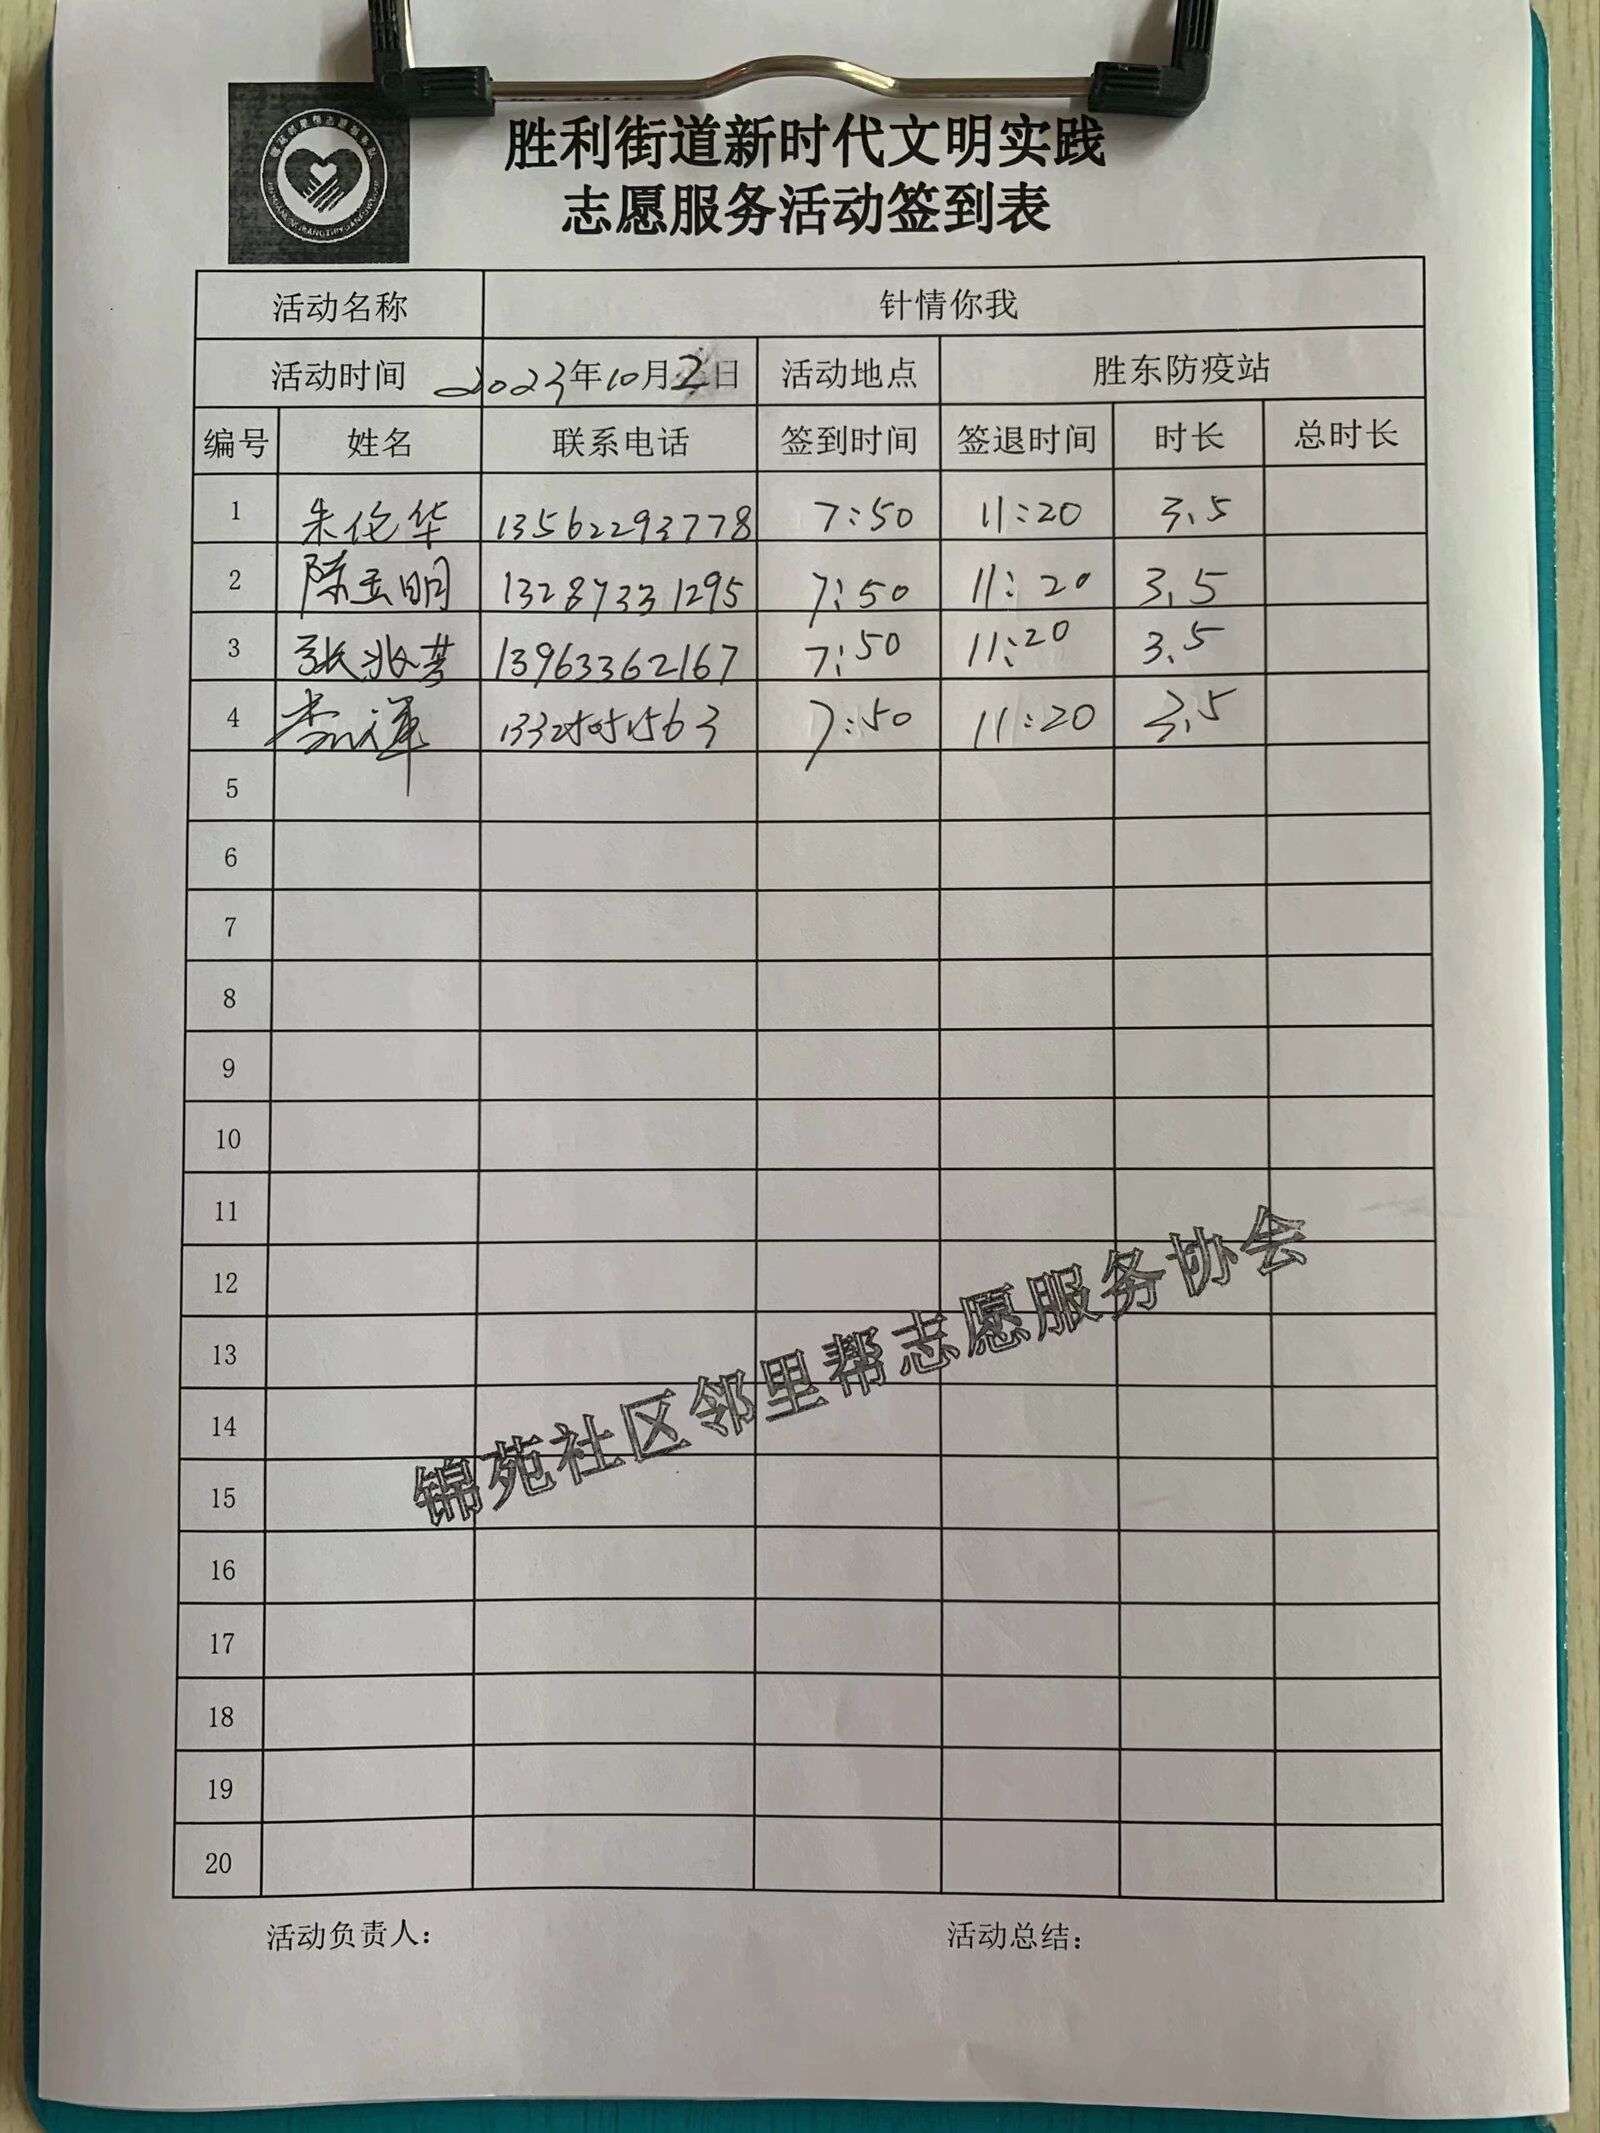 胜利街道新时代文明实践
志愿服务活动签到表
活动名称 针情你我
活动时间 2023年10月2日 活动地点 胜东防疫站
编号 姓名 联系电话 签到时间 签退时间 时长 总时长
1 朱伦华 13562293778 7:50 11:20 3.5
2 陈玉明 13287331295 7:50 11:20 3.5
3 张兆芳 13963362167 7:50 11:20 3.5
4 7:50 11:20 3.5
5
6
7
8
9
10
11
12
13
14
15
16
17
18
19
20
锦苑社区邻里帮志愿服务协会
活动负责人： 活动总结：